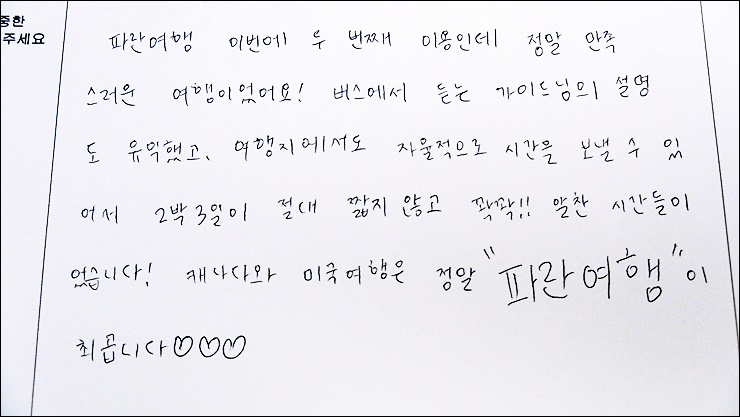 중한
주세요
파란여행 이번에 두 번째 이용인데 정말 만족
스러운 여행이었어요! 버스에서 듣는 가이드님의 설명
도 유익했고, 여행지에서도 자율적으로 시간을 보낼 수 있
어서 2박 3일이 절대 짧지 않고 꽉꽉!! 알찬 시간들이
었습니다! 캐나다와 미국여행은 정말 "파란여행"이
최곱니다♡♡♡